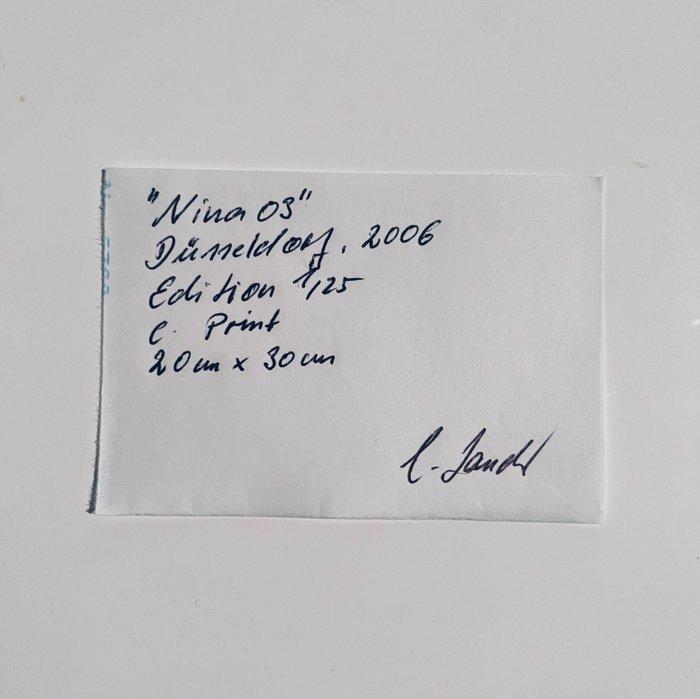 "Nina 03"
Düsseldorf, 2006
Edition 1/25
C. Print
20 cm x 30 cm